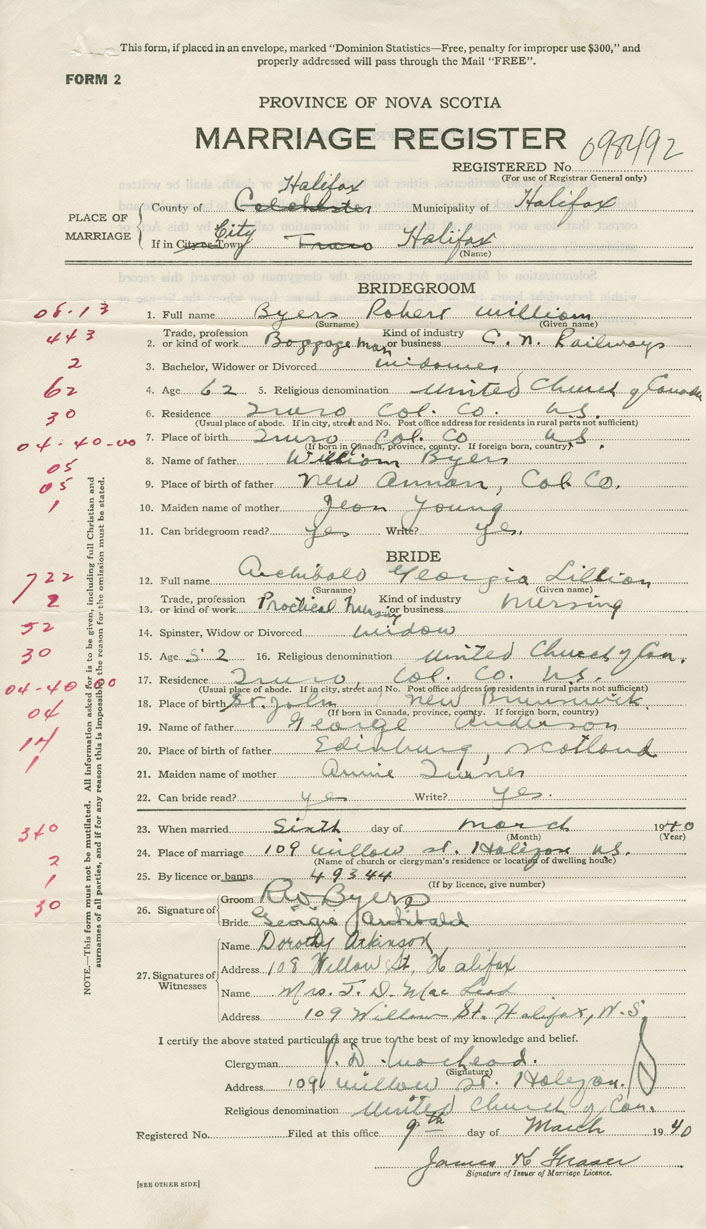 This form, if placed in an envelope, marked "Dominion Statistics—Free, penalty for improper use $300," and
properly addressed will pass through the Mail "FREE".
FORM 2
PROVINCE OF NOVA SCOTIA
MARRIAGE REGISTER
REGISTERED No. 098492
(For use of Registrar General only)
PLACE OF MARRIAGE
Halifax
County of Colchester Municipality of Halifax
City
If in City or Town Truro Halifax
(Name)
BRIDEGROOM
05-13
1. Full name Byers Robert William
(Surname) (Given name)
443
Trade, profession Kind of industry
2. or kind of work Baggage man or business C. N. Railways
2
3. Bachelor, Widower or Divorced widower
62
4. Age 62 5. Religious denomination United Church of Canada
30
6. Residence Truro Col. Co. N.S.
(Usual place of abode. If in city, street and No. Post office address for residents in rural parts not sufficient)
04-40-00
7. Place of birth Truro Col. Co N.S.
(If born in Canada, province, county. If foreign born, country)
05
8. Name of father William Byers
05
9. Place of birth of father New Annan, Col Co.
1
10. Maiden name of mother Jean Young
11. Can bridegroom read? yes Write? yes.
BRIDE
722
12. Full name Archibald Georgia Lillian
(Surname) (Given name)
2
Trade, profession Kind of industry
13. or kind of work Practical Nursing or business Nursing
52
14. Spinster, Widow or Divorced widow
30
15. Age 52 16. Religious denomination United Church of Can.
17. Residence Truro, Col. Co. N.S.
04-40 00
(Usual place of abode. If in city, street and No. Post office address for residents in rural parts not sufficient)
04
18. Place of birth St. John New Brunswick
(If born in Canada, province, county. If foreign born, country)
19. Name of father George Anderson
14
20. Place of birth of father Edinburg, Scotland
1
21. Maiden name of mother Annie Turner
22. Can bride read? yes Write? yes.
340
23. When married Sixth day of March 1940
(Month) (Year)
2
24. Place of marriage 109 Willow st. Halifax N.S.
(Name of church or clergyman's residence or location of dwelling house)
1
25. By licence or banns 49344
(If by licence, give number)
30
26. Signature of
Groom R W Byers
Bride Georgie Archibald
27. Signatures of Witnesses
Name Dorothy Atkinson
Address 108 Willow St, Halifax
Name Mrs. J. D. MacLeod
Address 109 Willow St. Halifax, N.S.
I certify the above stated particulars are true to the best of my knowledge and belief.
Clergyman J. D. MacLeod.
(Signature)
Address 109 Willow st. Halifax.
Religious denomination United Church of Can.
Registered No. Filed at this office 9th day of March 1940
James K Fraser
Signature of Issuer of Marriage Licence.
[SEE OTHER SIDE]
NOTE.—This form must not be mutilated. All information asked for is to be given, including full Christian and
surnames of all parties, and if for any reason this is impossible the reason for the omission must be stated.